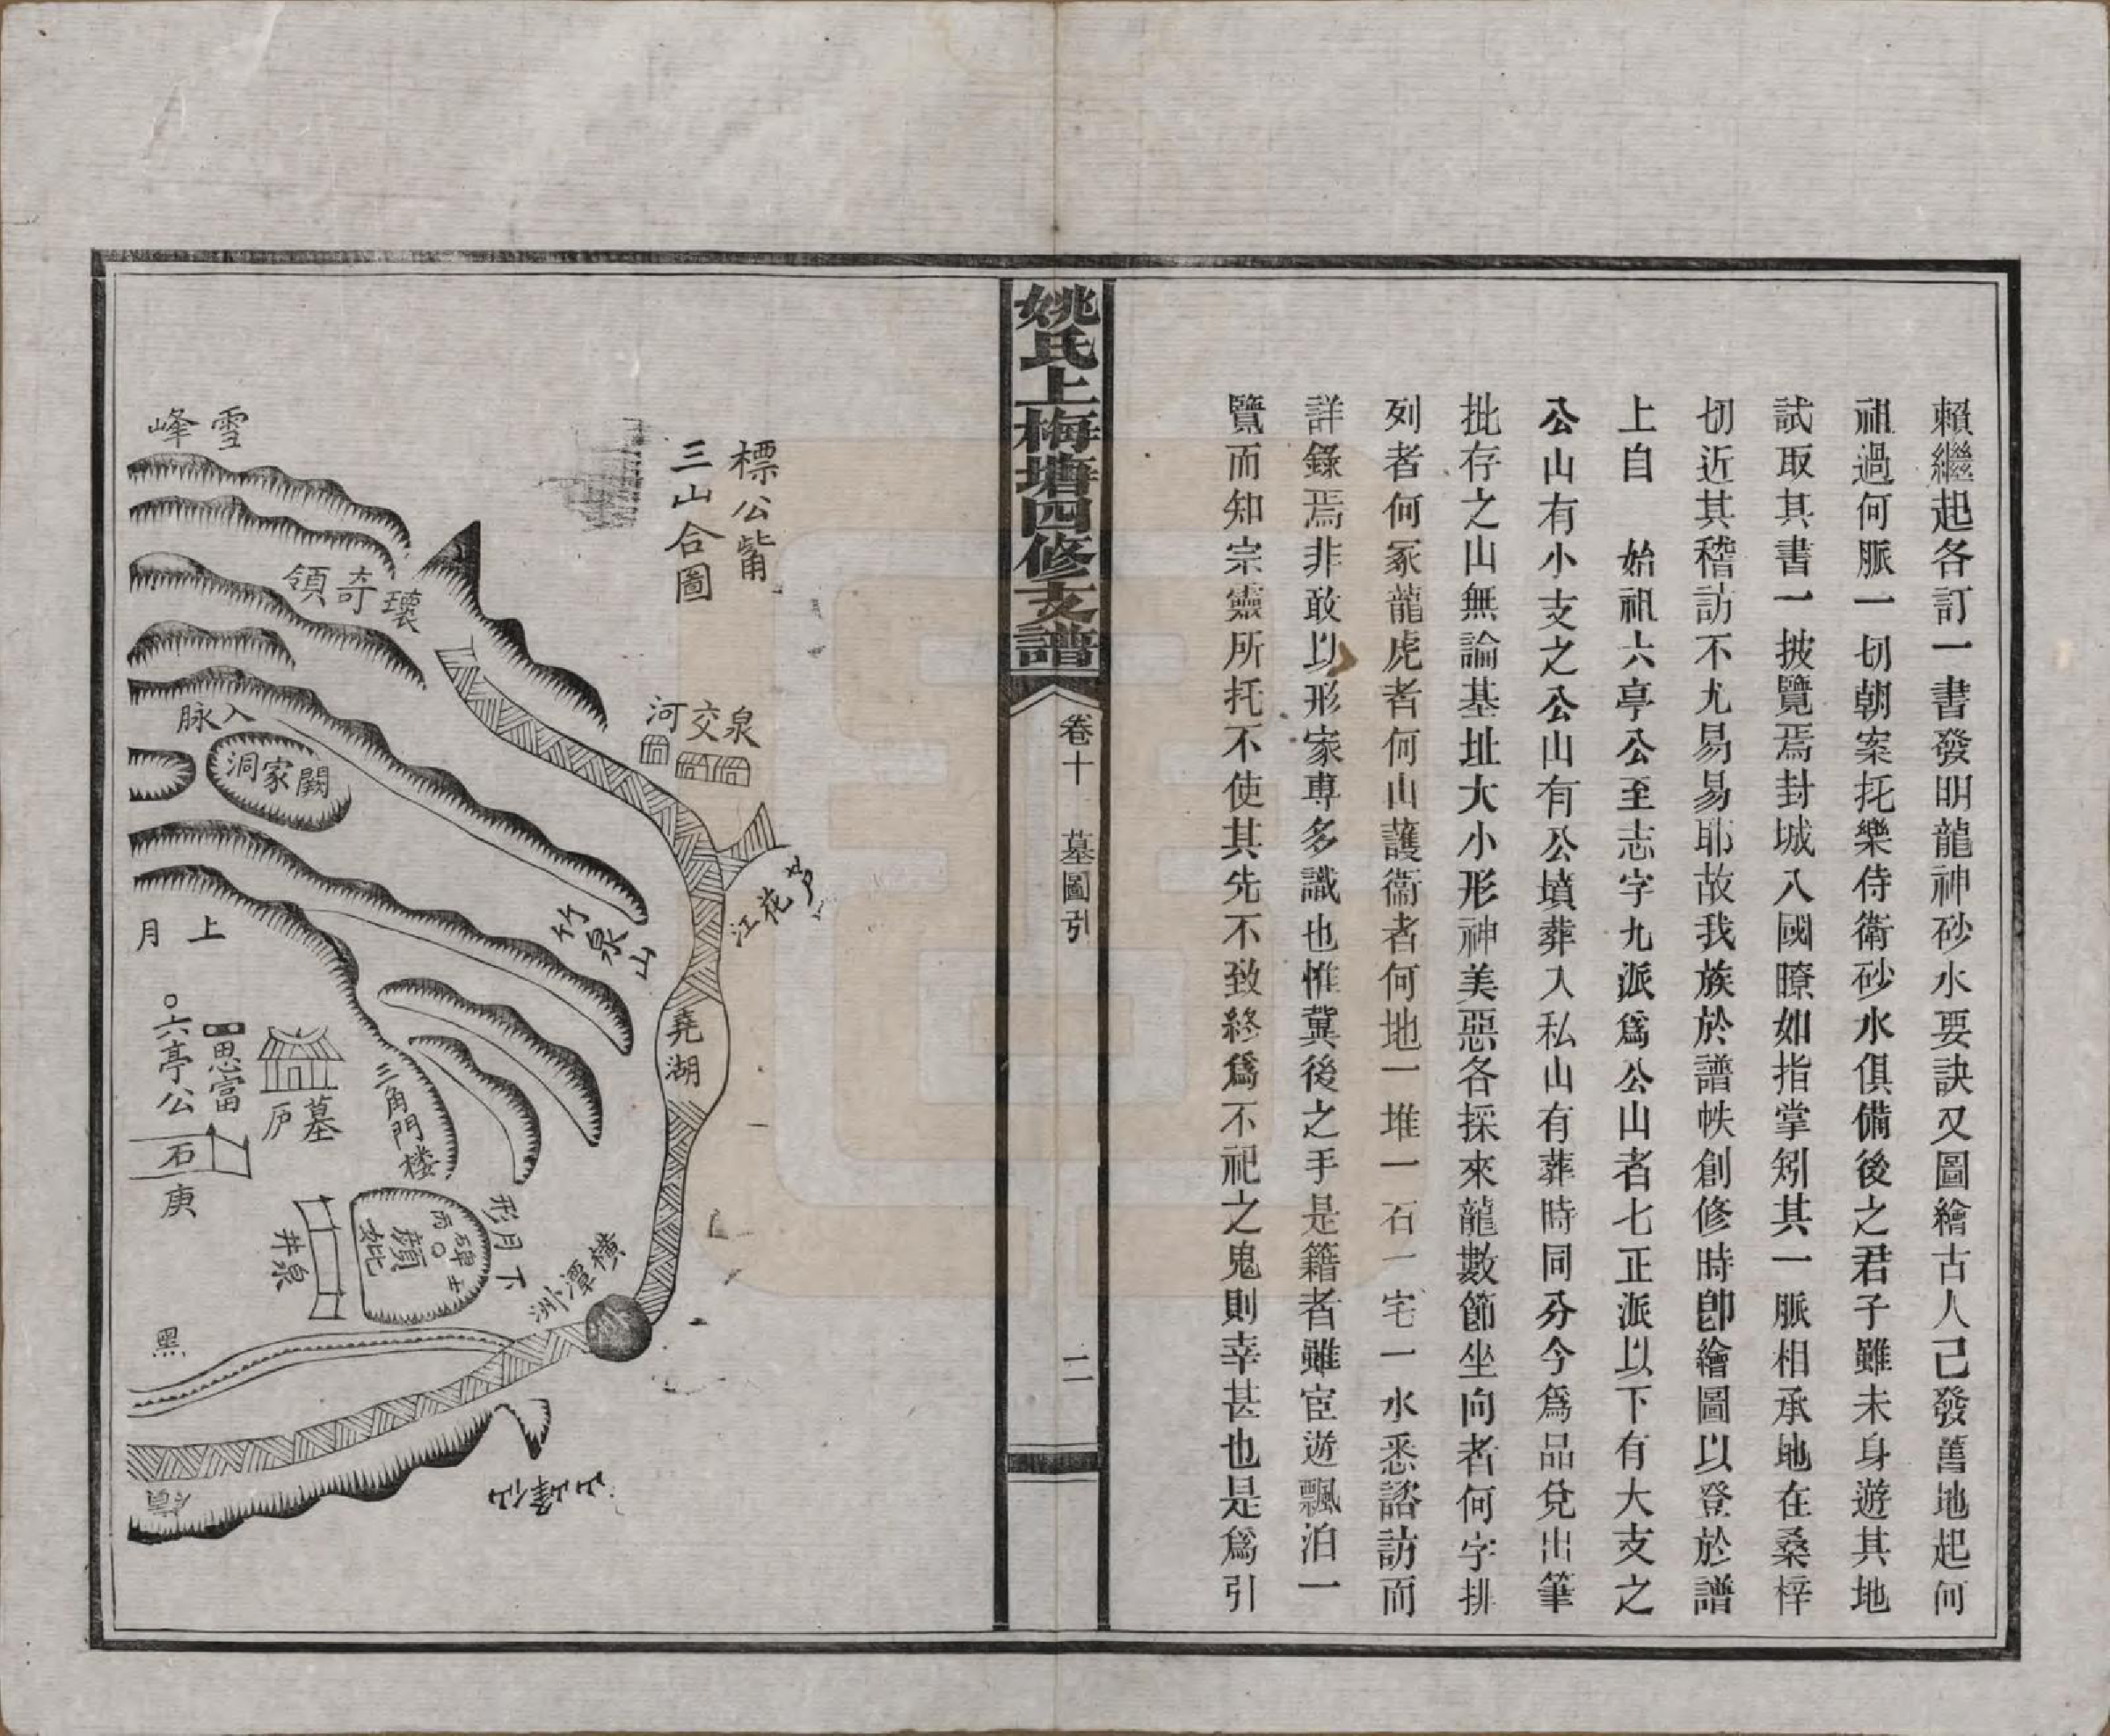 賴繼起各訂一書發明龍神砂水要訣又圖繪古人已發舊地起何
祖過何脈一切朝案托樂侍衛砂水俱備後之君子雖未身遊其地
試取其書一披覽焉封城入國瞭如指掌矧其一脈相承地在桑梓
切近其稽訪不尤易易耶故我族於譜帙創修時卽繪圖以登於譜
上自　始祖六亭公至志字九派爲公山者七正派以下有大支之
公山有小支之公山有公墳葬入私山有葬時同分今爲品兌出筆
批存之山無論基址大小形神美惡各採來龍數節坐向者何字排
列者何冢龍虎者何山護衞者何地一堆一石一宅一水悉諮訪而
詳錄焉非敢以形家專多識也惟冀後之手是籍者雖宦遊飄泊一
覽而知宗靈所托不使其先不致終爲不祀之鬼則幸甚也是爲引
姚氏上梅塘四修支譜
卷十　墓圖引
二
標公嘴
三山合圖
雪峰
瓌奇領
泉交河
入脉
闕家洞
芦花江
竹泉山
上月
堯湖
六亭公
思富
墓庐
三角門楼
石
庚
下月形
碑
顏妣
丙
泉井
橫潭洲
黑
仙峰山